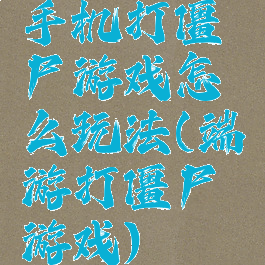 手机打僵
尸游戏怎
么玩法(端
游打僵尸
游戏)